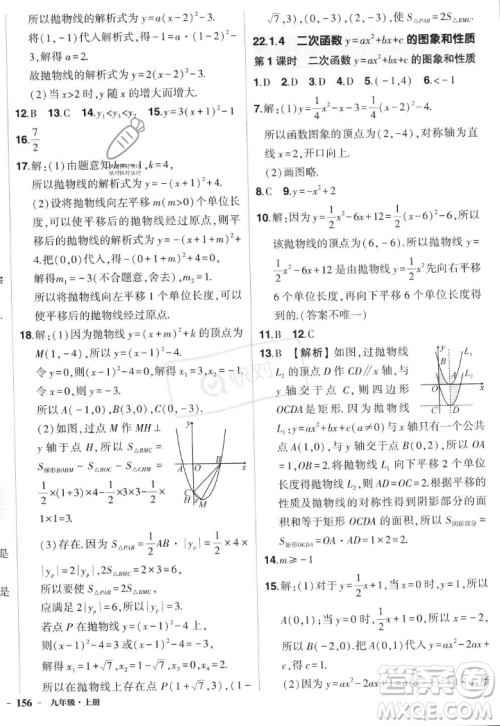 所以抛物线的解析式为 y=a(x-2)²,
将(1,-3)代入解析式,得 a(1-2)²=-3.
解得 a=-3.
故抛物线的解析式为 y=-3(x-2)².
(2)当 x<2 时,y 随 x 的增大而增大.
12.B 13.C 14.y₁<y₃<y₂ 15.y=3(x+1)²+2
16.7/2
17.解:(1)由题意知 k=4,
所以抛物线的解析式为 y=-(x+1)²+4.
(2)设将抛物线向左平移 m(m>0)个单位长
度,可以使平移后的抛物线经过原点,则平
移后的抛物线的解析式为 y=-(x+1+m)²+
4.把(0,0)代入,得 0=-(0+1+m)²+4.
解得 m₁=-3(不合题意,舍去),m₂=1.
所以将抛物线向左平移 1 个单位长度,可以
使平移后的抛物线经过原点.
18.解:(1)因为抛物线 y=(x+k)² 的顶点为
M(1,-4),所以 y=(x-1)²-4.
令 y=0,则(x-1)²-4=0.解得
令 x=0,则 y=(0-1)²-4=-3.
所以 A(-1,0),B(3,0),C(0,-3).
(2)如图,过点 M 作 MH⊥
y 轴于点 H,所以 S△BMC=
S梯形BOHM-S△BOC-S△MHC=
1/2×(1+3)×4-1/2×3×3-
1/2×1×1=3.
(3)存在.因为 S△PAB=1/2AB·|yp|=1/2×4×
|yp|=2|yp|=6,
所以要使 S△PAB=2S△BMC,
应满足 2|yp|=6.所以 yp=±3.
若点 P 在 x 轴上方,则 yp=3.所以(x-1)²-
4=3.解得 x=1±√7.
所以抛物线上存在点 P(1+√7,3)或(1-
156 九年级·上册
√7,3),(0,-3),(2,-3),使 S△PAB=2S△BMC.
22.1.4 二次函数 y=ax²+bx+c 的图象和性质
第 1 课时 二次函数 y=ax²+bx+c 的图象和性质
1.D 2.D 3.D 4.D 5.(-1,4) 6.-1
7.解:(1)因为 y=1/4x²-x-3=1/4(x-2)²-4,
所以函数图象的顶点为(2,-4).
(2)画图略.
8.D 9.y=-x²+2
10.解:因为 y=1/2x²-6x+12=1/2(x-6)²-6,所以
该抛物线的顶点坐标为(6,-6).所以把抛物
线 y=1/2x²-6x+12 先向左平移 6 个单位长
度,再向上平移 6 个单位长度可得到抛物线 y=
1/2x².(答案不唯一)
11.B 12.C
13.B 【解析】如图,过抛物线
L₂ 的顶点 D 作 CD∥x 轴,与
y 轴交于点 C,则四边形
OCDA 是矩形.因为抛物线
L₁:y=ax²+bx+c(a≠0)与 x 轴只有一个公共
点 A(1,0),与 y 轴交于点 B(0,2),所以 OB=2,
OA=1.将抛物线 L₁ 向下平移 2 个单位长度得
抛物线 L₂,则 AD=OC=2.根据平移的
性质及抛物线的对称性得到阴影部分的
面积等于矩形 OCDA 的面积,所以 S阴影部分=
S矩形OCDA=OA·AD=1×2=2.
14.-4
15.解:(1)因为 y=ax²-2ax-2 的图象过点
A(0,1),所以 a-2a-2=1.解得